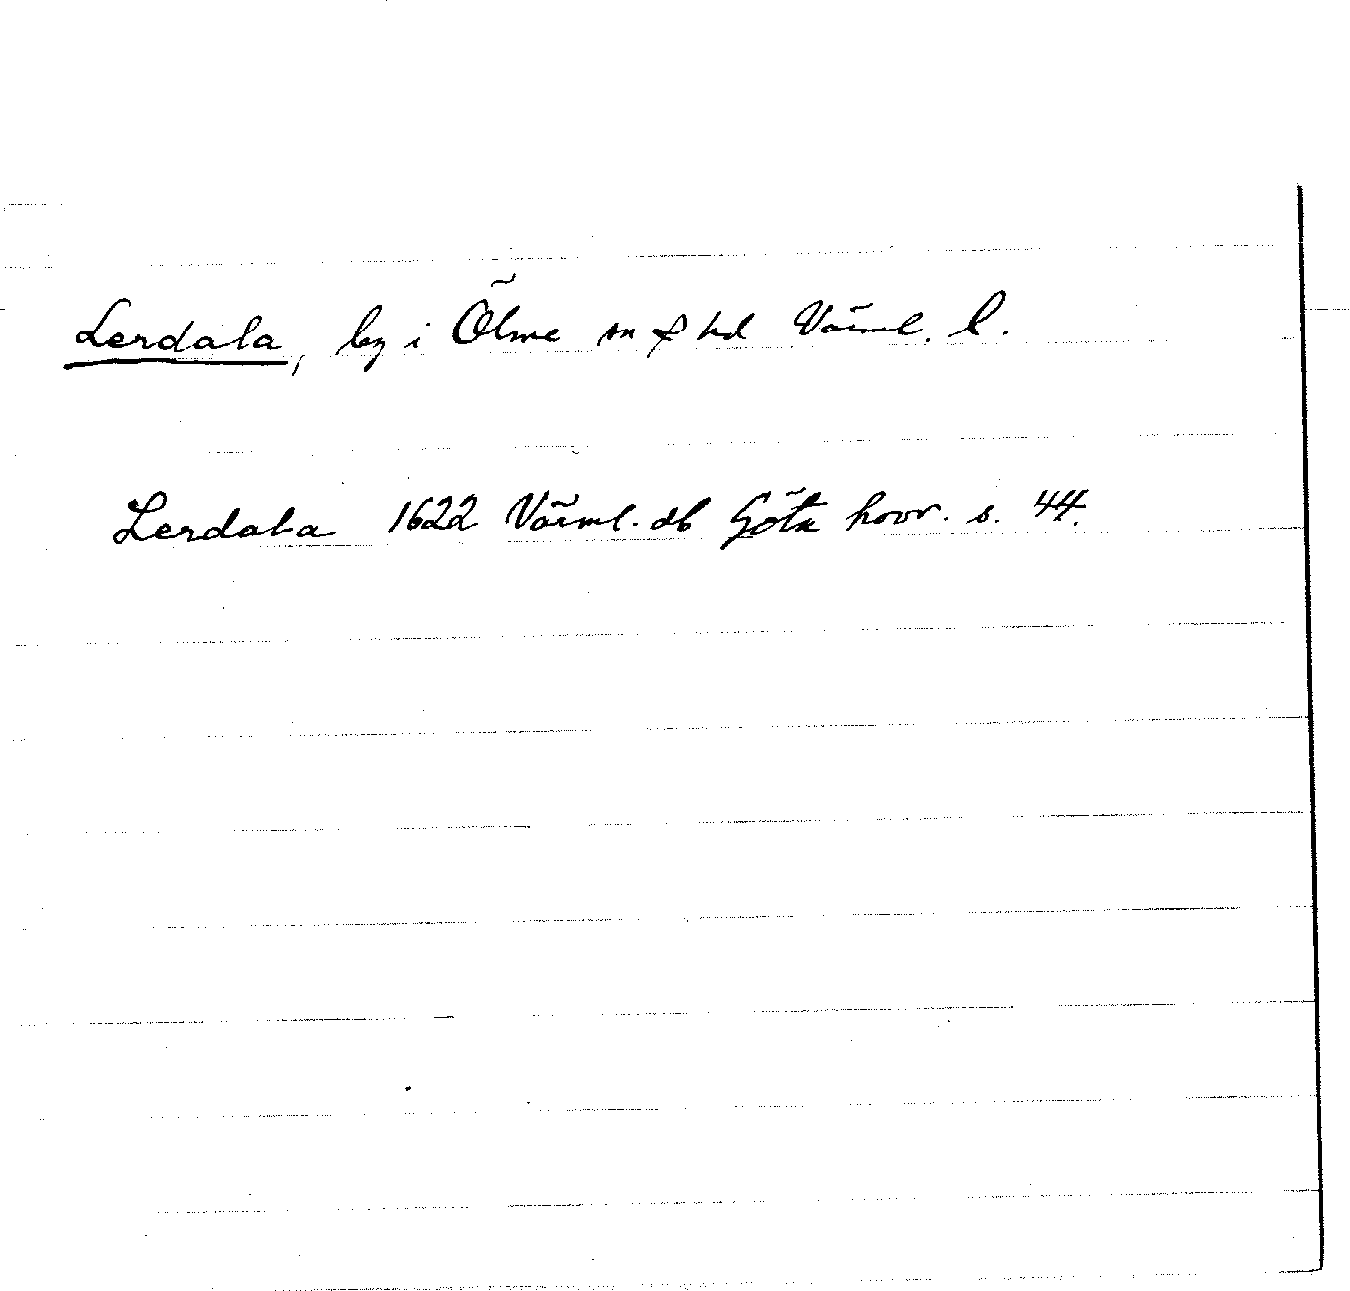 Lerdala, by i Ölme sn & hd Värml. l.
Lerdala 1622 Värml. db Göta hovr. s. 44.